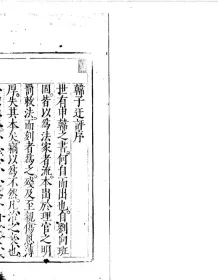 韓子迂評序
世有申韓之書何自而出也自劉向班
固皆以為法家者流本出於理官之明
罰敕法而刻者為之殘及至親傷恩薄
厚失其本矣竊以為不然